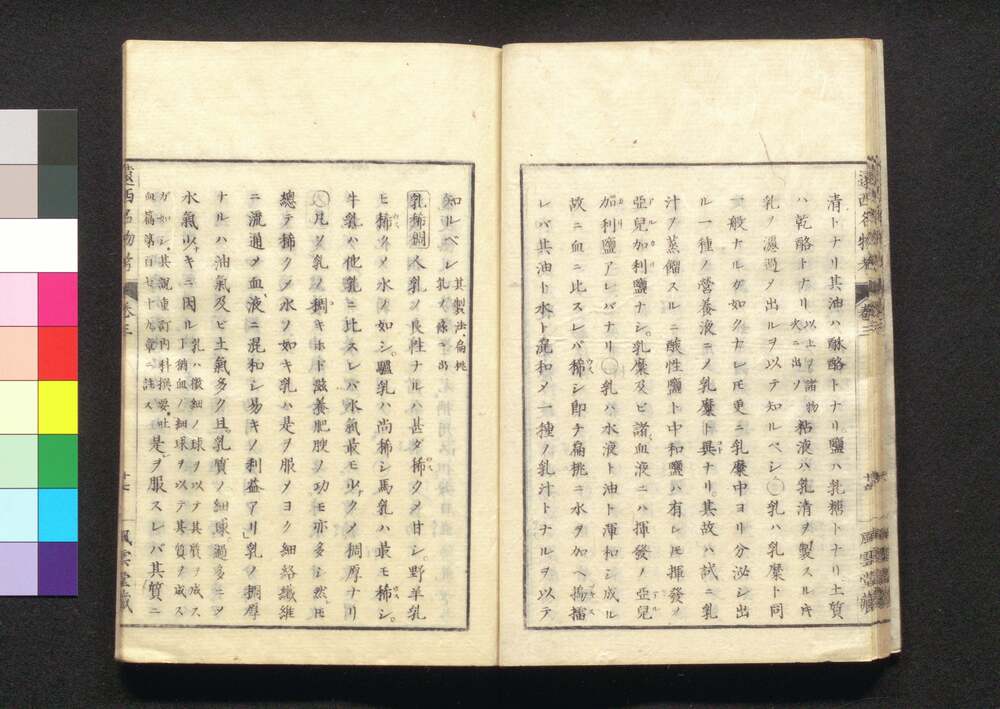 清トナリ其油ハ酥酪トナリ鹽ハ乳糖トナリ土質
ハ乾酪トナリ以上ノ諸物次ニ出ツ粘液ハ乳清ヲ製スル時
乳ヲ濾過メ出ルヲ以テ知ルベシ○乳ハ乳糜ト同
一般ナルガ如クナレモ更ニ乳糜中ヨリ分泌シ出
ル一種ノ營養液ニメ乳糜ト異ナリ其故ハ試ニ乳
汁ヲ蒸餾スルニ酸性鹽ト中和鹽ハ有レモ揮發ノ
亞兒加利鹽ナシ乳糜及ビ諸血液ニハ揮發ノ亞兒
加利鹽アレバナリ○乳ハ水液ト油ト渾和シ成ル
故ニ血ニ比スレバ稀シ即チ扁桃ニ水ヲ加ヘ搗擂
レバ其油ト水ト混和メ一種ノ乳汁トナルヲ以テ
知ルベシ其製法扁桃乳ノ條ニ出
乳稀稠 人乳ノ良性ナルハ甚ダ稀クメ甘シ野羊乳
モ稀クメ水ノ如シ驢乳ハ尚稀シ馬乳ハ最モ稀シ
牛乳ハ他乳ニ比スレバ水氣最モ少クメ稠厚ナリ
○凡ソ乳ノ稠キホド滋養肥腴ノ功モ亦多シ然モ
總テ稀クメ水ノ如キ乳ハ是ヲ服メヨク細絡纖維
ニ流通メ血液ニ混和シ易キノ利益アリ乳ノ稠厚
ナルハ油氣及ビ土氣多ク且乳質ノ細球過多ニメ
水氣少キニ因ル乳ハ微細ノ球ヲ以テ其質ヲ成ス丁猶血ノ細球ヲ以テ其質ヲ成ス
ガ如シ其説重訂内科撰要血篇第百七十九章ニ註ス是ヲ服スレバ其質ニ
遠西名物考 卷三
風雲堂藏